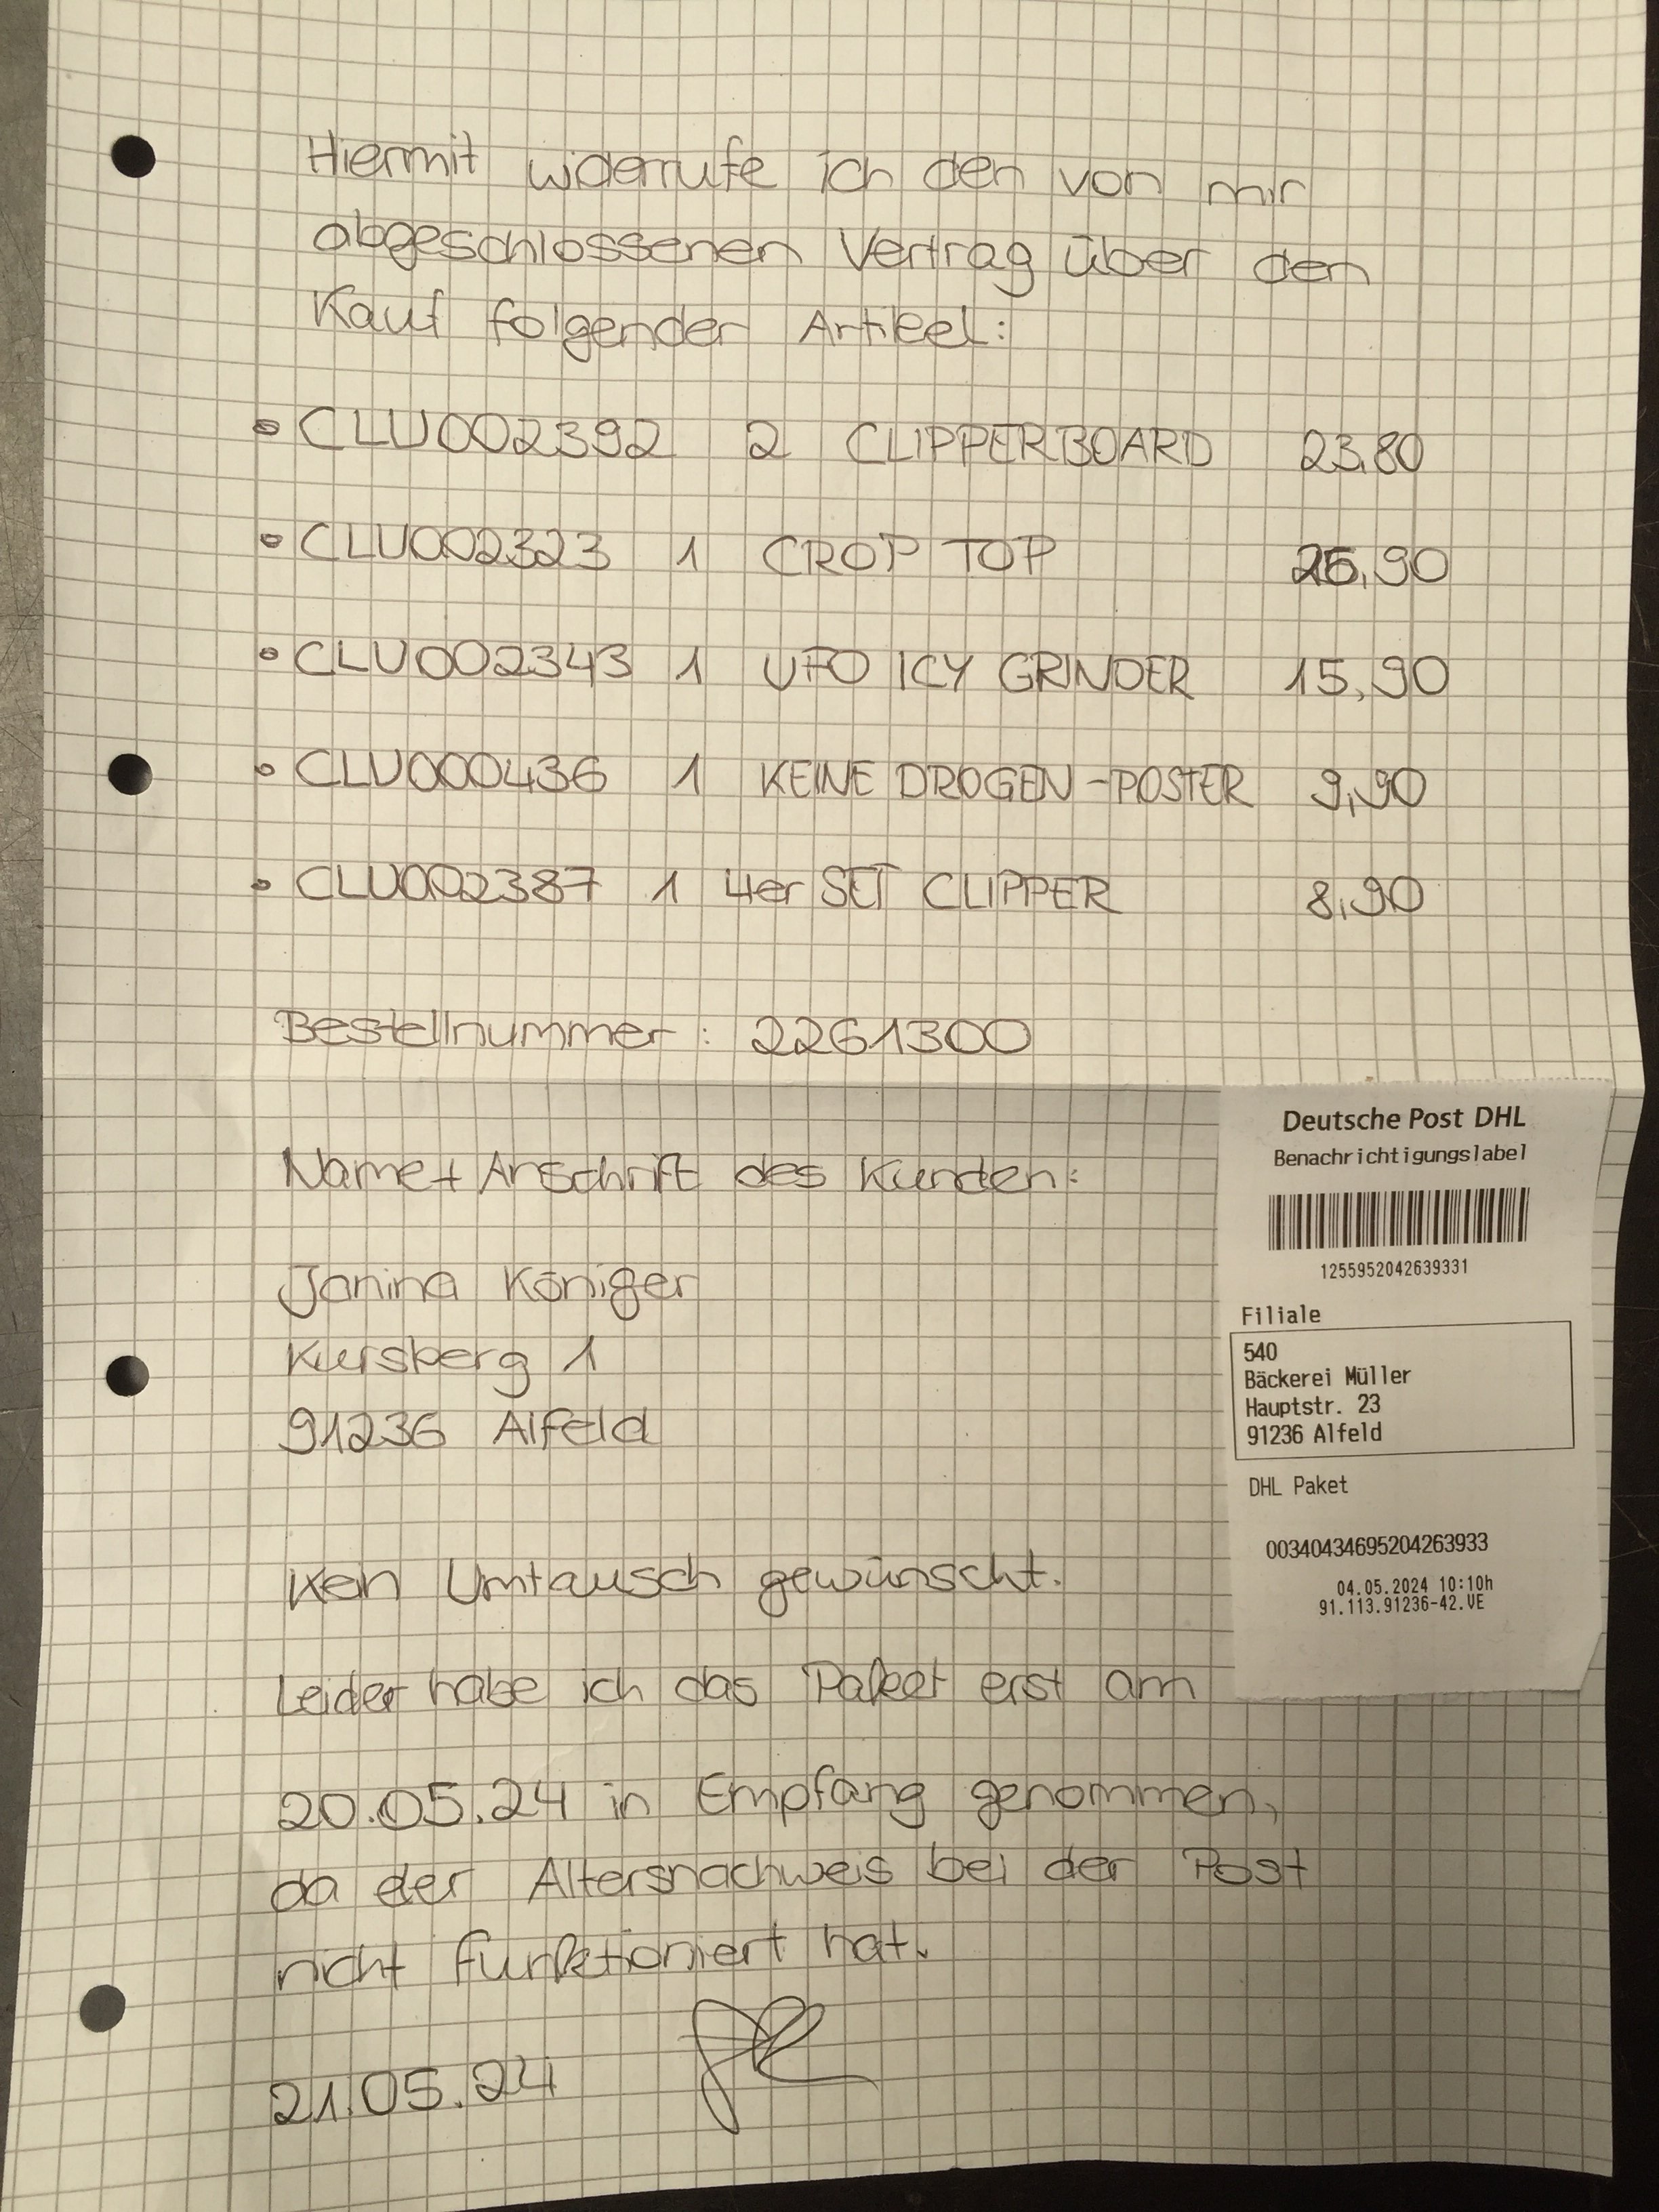 Hiermit widerrufe ich den von mir
abgeschlossenen Vertrag über den
Kauf folgender Artikel:
• CLU002392 2 CLIPPERBOARD 23,80
• CLU002323 1 CROP TOP 26,90
• CLU002343 1 UFO ICY GRINDER 15,90
• CLU000436 1 KEINE DROGEN-POSTER 9,90
• CLU002387 1 4er SET CLIPPER 8,90
Bestellnummer: 2261300
Name+Anschrift des Kunden:
Janina Königer
Kursberg 1
91236 Alfeld
Kein Umtausch gewünscht.
Leider habe ich das Paket erst am
20.05.24 in Empfang genommen,
da der Altersnachweis bei der Post
nicht funktioniert hat.
21.05.24
Deutsche Post DHL
Benachrichtigungslabel
1255952042639331
Filiale
540
Bäckerei Müller
Hauptstr. 23
91236 Alfeld
DHL Paket
00340434695204263933
04.05.2024 10:10h
91.113.91236-42.VE